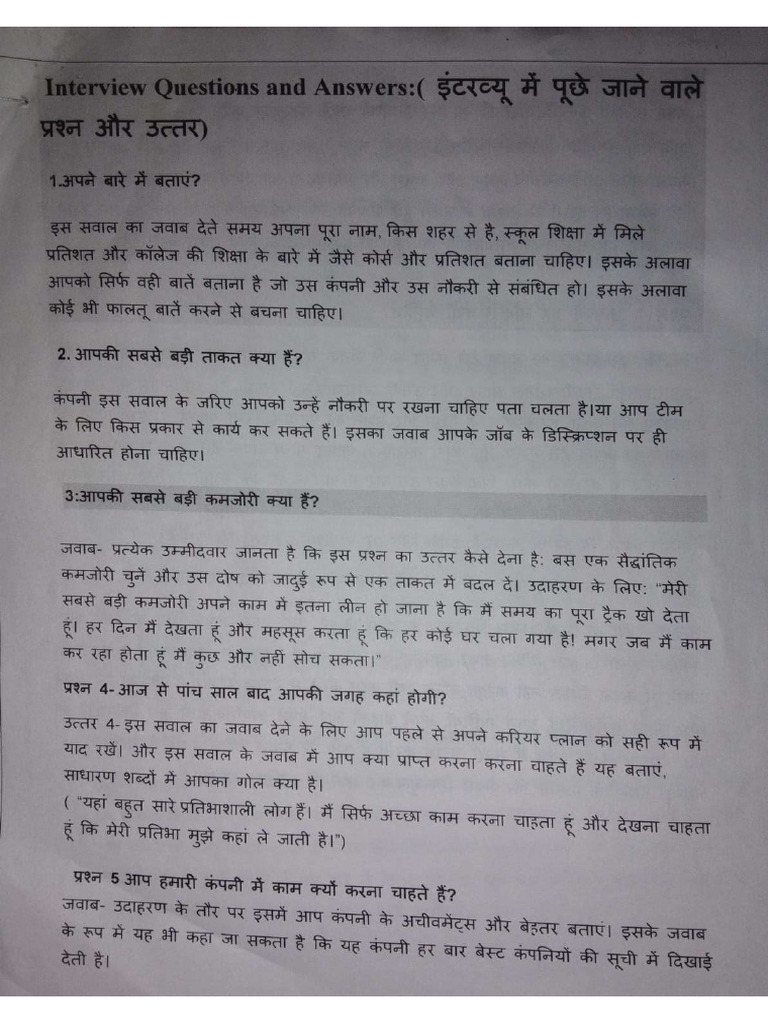 Interview Questions and Answers:( इंटरव्यू में पूछे जाने वाले
प्रश्न और उत्तर)
1.अपने बारे में बताएं?
इस सवाल का जवाब देते समय अपना पूरा नाम, किस शहर से है, स्कूल शिक्षा में मिले
प्रतिशत और कॉलेज की शिक्षा के बारे में जैसे कोर्स और प्रतिशत बताना चाहिए। इसके अलावा
आपको सिर्फ वही बातें बताना है जो उस कंपनी और उस नौकरी से संबंधित हो। इसके अलावा
कोई भी फालतू बातें करने से बचना चाहिए।
2. आपकी सबसे बड़ी ताकत क्या हैं?
कंपनी इस सवाल के जरिए आपको उन्हें नौकरी पर रखना चाहिए पता चलता है।या आप टीम
के लिए किस प्रकार से कार्य कर सकते हैं। इसका जवाब आपके जॉब के डिस्क्रिप्शन पर ही
आधारित होना चाहिए।
3:आपकी सबसे बड़ी कमजोरी क्या हैं?
जवाब- प्रत्येक उम्मीदवार जानता है कि इस प्रश्न का उत्तर कैसे देना है: बस एक सैद्धांतिक
कमजोरी चुनें और उस दोष को जादुई रूप से एक ताकत में बदल दें। उदाहरण के लिए: “मेरी
सबसे बड़ी कमजोरी अपने काम में इतना लीन हो जाना है कि मैं समय का पूरा ट्रैक खो देता
हूं। हर दिन मैं देखता हूं और महसूस करता हूं कि हर कोई घर चला गया है! मगर जब मैं काम
कर रहा होता हूं मैं कुछ और नहीं सोच सकता।”
प्रश्न 4-आज से पांच साल बाद आपकी जगह कहां होगी?
उत्तर 4-इस सवाल का जवाब देने के लिए आप पहले से अपने करियर प्लान को सही रूप में
याद रखें। और इस सवाल के जवाब में आप क्या प्राप्त करना करना चाहते हैं यह बताएं,
साधारण शब्दों में आपका गोल क्या है।
( “यहां बहुत सारे प्रतिभाशाली लोग हैं। मैं सिर्फ अच्छा काम करना चाहता हूं और देखना चाहता
हूं कि मेरी प्रतिभा मुझे कहां ले जाती है।”)
प्रश्न 5 आप हमारी कंपनी में काम क्यों करना चाहते हैं?
जवाब- उदाहरण के तौर पर इसमें आप कंपनी के अचीवमेंट्स और बेहतर बताएं। इसके जवाब
के रूप में यह भी कहा जा सकता है कि यह कंपनी हर बार बेस्ट कंपनियों की सूची में दिखाई
देती है।